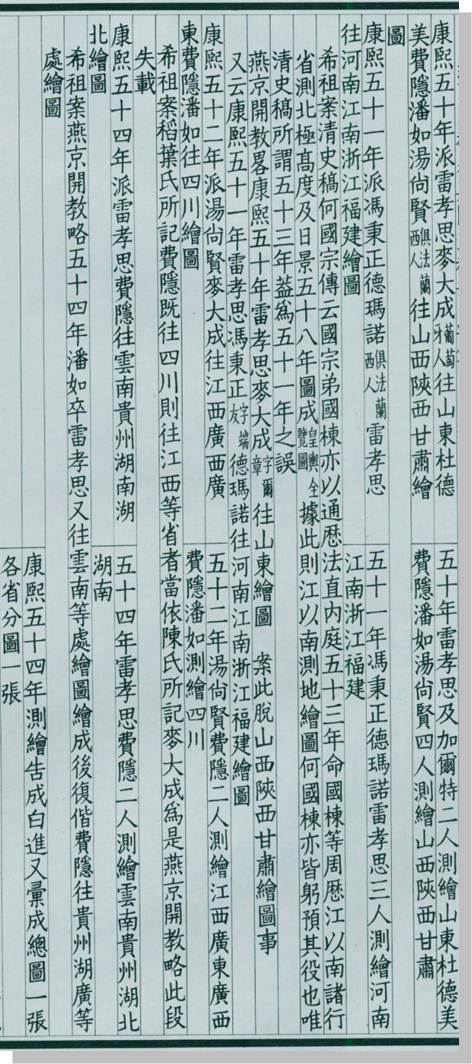 康熙五十年派雷孝思麥大成葡萄牙人往山東杜德 五十年雷孝思及加爾特二人測繪山東杜德美
美費隱潘如湯尚賢俱法蘭西人往山西陝西甘肅繪 費隱潘如湯尚賢四人測繪山西陝西甘肅
圖
康熙五十一年派馮秉正德瑪諾俱法蘭西人雷孝思 五十一年馮秉正德瑪諾雷孝思三人測繪河南
往河南江南浙江福建繪圖 江南浙江福建
希祖案清史稿何國宗傳云國宗弟國棟亦以通歷法直内庭五十三年命國棟等周歷江以南諸行
省測北極高度及日景五十八年圖成皇輿全覽圖據此則江以南測地繪圖何國棟亦皆躬預其役也唯
清史稿所謂五十三年葢爲五十一年之誤
燕京開教畧康熙五十年雷孝思麥大成字爾章往山東繪圖 案此脫山西陝西甘肅繪圖事
又云康熙五十一年雷孝思馮秉正字端友德瑪諾往河南江南浙江福建繪圖
康熙五十二年派湯尚賢麥大成往江西廣西廣 五十二年湯尚賢費隱二人測繪江西廣東廣西
東費隱潘如往四川繪圖 費隱潘如測繪四川
希祖案稻葉氏所記費隱既往四川則往江西等省者當依陳氏所記麥大成爲是燕京開教略此段
失載
康熙五十四年派雷孝思費隱往雲南貴州湖南湖 五十四年雷孝思費隱二人測繪雲南貴州湖北
北繪圖 湖南
希祖案燕京開教略五十四年潘如卒雷孝思又往雲南等處繪圖繪成後復偕費隱往貴州湖廣等
處繪圖
康熙五十四年測繪告成白進又彙成總圖一張
各省分圖一張